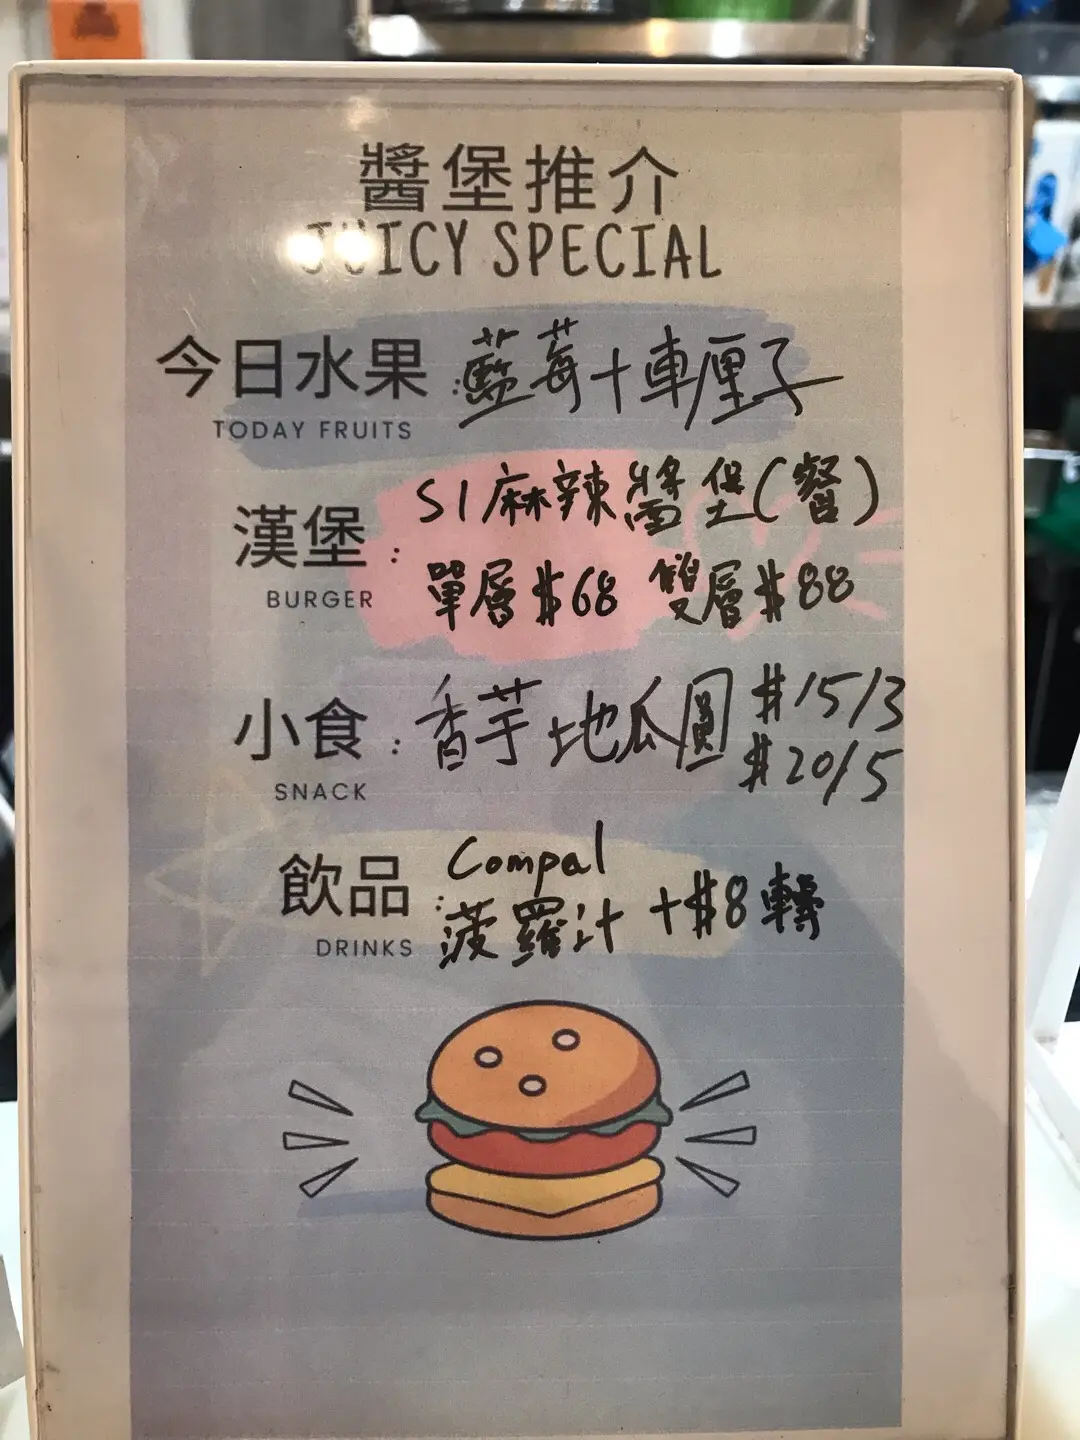 醬堡推介
JUICY SPECIAL
今日水果:藍莓+車厘子
TODAY FRUITS
漢堡:S1麻辣醬堡(餐)
BURGER
單層$68 雙層$88
小食:香芋地瓜圓 $15/3
$20/5
SNACK
飲品:Compal
菠蘿汁 +$8轉
DRINKS